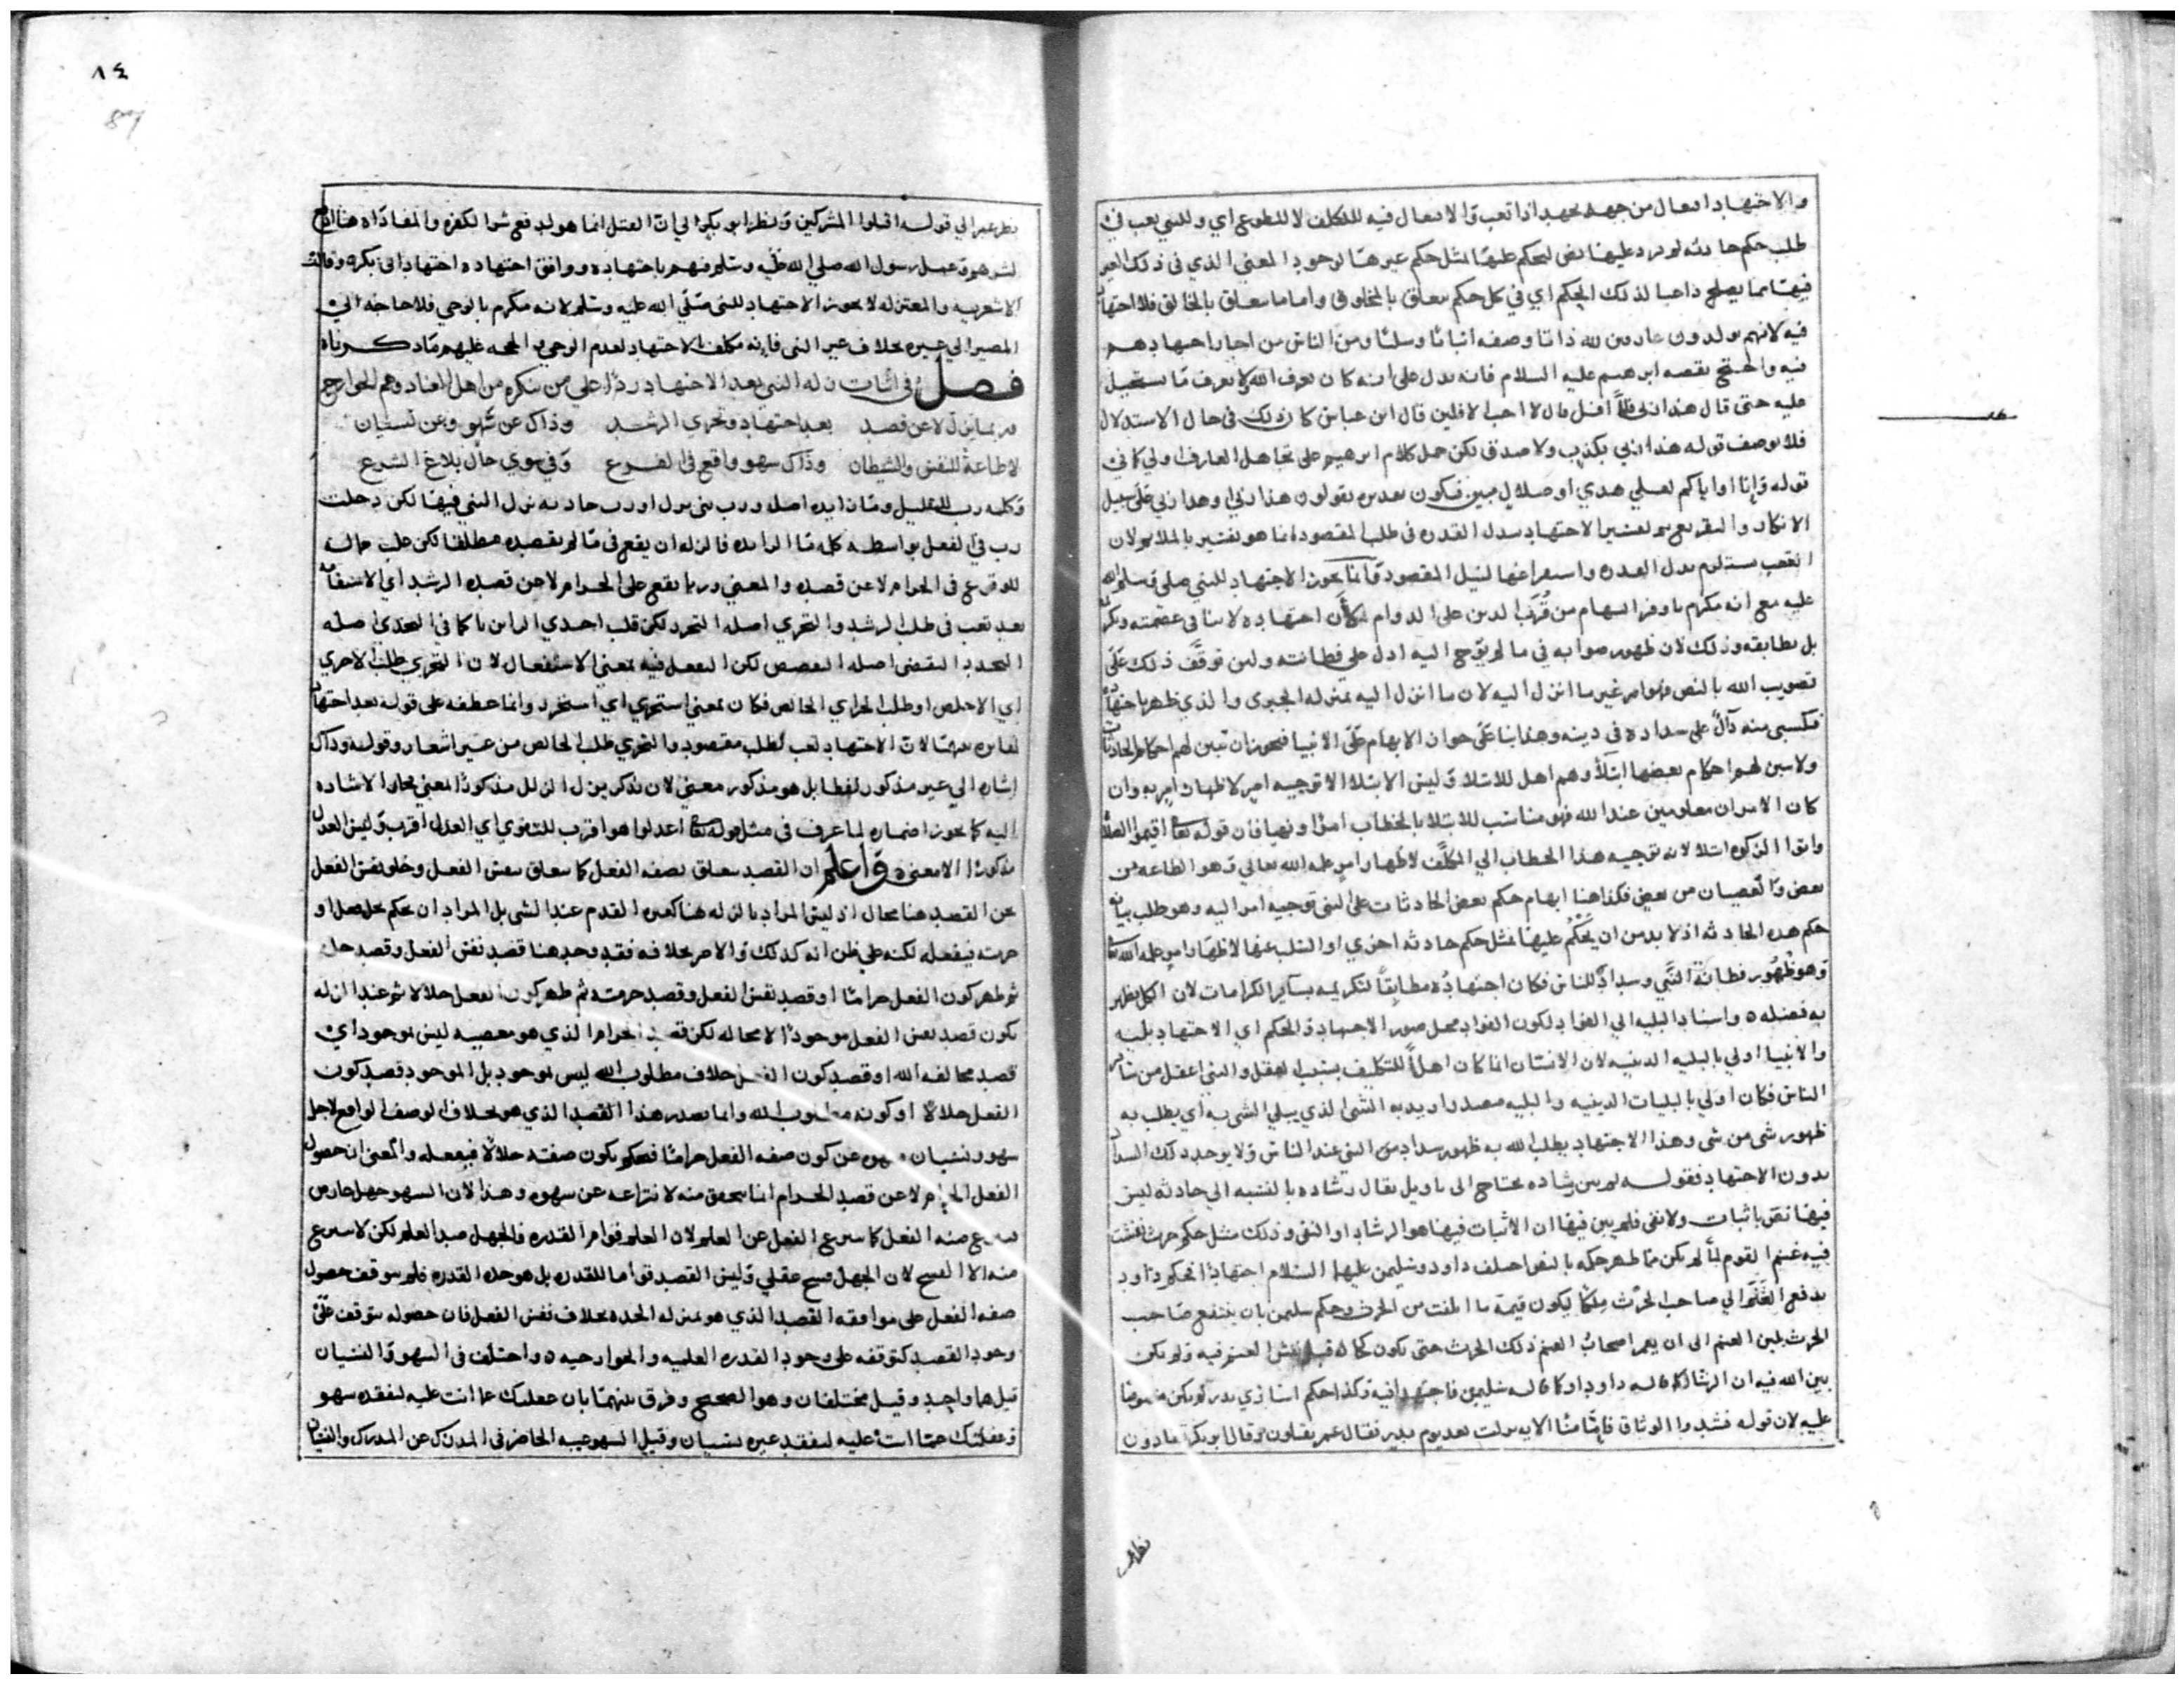 والاجتهاد افعال من جهد يجهد اذا تعب والافتعال فيه للتكلف لا للطوع اي وللنبي تعب في
طلب حكم حادثه لم يرد عليها نص ليحكم عليها بمثل حكم غيرها لوجود المعنى الذي في ذلك الغير
فيها مما يصلح داعيا لذلك الحكم اي في كل حكم يتعلق بالمخلوق واما ما يتعلق بالخالق فلا اجتهاد
فيه لانهم يولدون عارفين لله ذاتا وصفه اثباتا وسلبا ومن الناس من اجاز اجتهادهم
فيه والحتج بقصه ابرهيم عليه السلام فانه يدل على انه كان يعرف الله ولا يعرف ما يستحيل
عليه حتى قال هذا ربي فلما افل قال لا احب الافلين قال ابن عباس كان ذلك في حال الاستدلال
فلا يوصف قوله هذا ربي بكذب ولا صدق لكن حمل كلام ابرهيم على تجاهل العارف اولى كما في
قوله وانا او اياكم لعلى هدى او ضلال مبين فيكون تقديره يقولون هذا ربي او هذا ربي على سبيل
الانكار والتقريع ثم تفسير الاجتهاد ببدل القدره في طلب المقصود انما هو تفسير بالملازم لان
التعب يستلزم بدل القدره واستفراغها لنيل المقصود وانما يجوز الاجتهاد للنبي صلى وسلم الله
عليه مع انه مكرم باوفر السهام من قرب الدين على الدوام لان اجتهاده لا ينافي عصمته وتكرمه
بل يطابقه وذلك لان ظهور صوابه في ما لم يوح اليه ادل على فطانته ولين توقف ذلك على
تصويب الله بالنص فهو امر غير ما انزل اليه لان ما انزل اليه بمنزله الجبرى والذي ظهر باجتهاده
فكسبي منه دال على سداده في دينه وهذا بنا على جواز الابهام على الانبيا فيجوز ان تبين لهم احكام الحادثات
ولا يبين لهم احكام بعضها ابتلا وهم اهل للابتلا وليس الابتلا الا توجيه امر لاظهار امر به وان
كان الامران معلومين عند الله فهو مناسب للابتلا بالخطاب امرا ونهيا فان قوله تعالى اقيموا الصلاة
واتوا الزكوه ابتلا لانه توجيه هذا الخطاب الي المكلف لاظهار امر علمه الله تعالي وهو الطاعه من
بعض والعصيان من بعض فكذا هنا ابهام حكم بعض الحادثات على النبي توجيه امر اليه وهو طلب بيانه
حكم هذه الحادثه اذ لا بد من ان يحكم عليها بمثل حكم حادثه اخري او السلب عنها لاظهار امر علمه الله تعالى
وهو ظهور فطانة النبي وسداده للناس فكان اجتهاده مطابقا لتكريمه بسائر الكرامات لان الكل يظهر
به فضله واسناد البليه الي الفؤاد لكون الفؤاد محل صور الاجتهاد والحكم اي الاجتهاد بليه
والانبيا اولى بالبليه الدينيه لان الانسان انما كان اهلا للتكليف بسبب العقل والنبي اعقل من سائر
الناس فكان اولي بالبليات الدينيه والبليه مصدر اريد به الشئ الذي يبلي الشي به اي يطلب به
ظهور شي من شي وهذا الاجتهاد يطلب الله به ظهور سداد من النبي عند الناس ولا يوجد ذلك السداد
بدون الاجتهاد فقوله لم يبين رشاده محتاج الى تاويل يقال رشاده بالنسبه الي حادثه ليس
فيها نص باثبات ولا نفي فلم يبين فيها ان الاثبات فيها هو الرشاد او النفي وذلك مثل حكم حرث نفشت
فيه غنم القوم لما لم يكن مما ظهر حكمه بالنص اختلف داود وسليمن عليهما السلام اجتهادا فحكم داود
بدفع الغنم الي صاحب الحرث ملكا يكون قيمة ما اتلفت من الحرث وحكم سليمن بان ينتفع صاحب
الحرث بلبن الغنم الى ان يعمر اصحاب الغنم ذلك الحرث حتى يكون كما كان قبل نفش الغنم فيه ولم يكن
بين الله فيه ان الرشاد كما قاله داود او كما قاله سليمن فاجتهدا فيه وكذا حكم اسارى بدر لم يكن منصوصا
عليه لان قوله فشدوا الوثاق فاما منا الايه نزلت بعد يوم بدر فقال عمر يقتلون وقال ابو بكر يفادون
نظر
٨٤
87
نظر عمر الي قوله اقتلوا المشركين ونظر ابو بكر الي ان القتل انما هو لدفع شر الكفره والمفاداه هنا ادفع
لشرهم وعمل رسول الله صلى الله عليه وسلم فيهم باجتهاده ووافق اجتهاده اجتهاد ابي بكر وقالت
الاشعريه والمعتزله لا يجوز الاجتهاد للنبي صلى الله عليه وسلم لانه مكرم بالوحي فلا حاجه الي
المصير الى غيره بخلاف غير النبي فانه مكلف بالاجتهاد لعدم الوحي والحجه عليهم ما ذكرناه
فصل في اثبات زله النبي بعد الاجتهاد ردا علي من ينكره من اهل العناد وهم الخوارج
وربما يزل لا عن قصد بعد اجتهاد وتحري الرشد وذاك عن سهو وعن نسيان
لا طاعة للنفس والشيطان وذاك سهو واقع في الفرع وفي سوي حال بلاغ الشرع
وكلمه رب للتقليل وما زايده اصله ورب شي يزل او رب حادثه يزل النبي فيها لكن دخلت
رب في الفعل بواسطه كله ما الزايده فالزله ان يقع في ما لم يقصده مطلقا لكن غلب حاله
للوقوع في الحرام لا عن قصده والمعنى وربما يقع على الحرام لا عن قصده الرشد اي الاستقامه
بعد تعب في طلب الرشد والتحري اصله التحرر لكن قلب احدي الراين يا كما في التحدي اصله
التحدد التقضي اصله التقصص لكن التفعل فيه بمعنى الاستفعال لان التحري طلب الاحري
اي الاخلص او طلب الحراي الخالص فكان بمعنى استحرى اي استحرر وانما عطفه على قوله بعد اجتهاد
لمغايره بينهما لان الاجتهاد تعب لطلب مقصود والتحري طلب الخالص من غير اشعار وقوله وذاك
اشاره الي غير مذكور لفظا بل هو مذكور معنى لان بذكر يزل الزلل مذكورا لمعنى فجاز الاشاره
اليه كما يجوز اضماره لما عرف في مثل قوله تعالى اعدلوا هو اقرب للتقوى اي العدل اقرب وليس العدل
مذكورا الا معنى واعلم ان القصد يتعلق بصفه الفعل كما يتعلق بنفس الفعل وخلو نفس الفعل
عن القصد هنا محال اذ ليس المراد بالزله هنا كعثره القدم عند المشي بل المراد ان يحكم بحل فعل او
حرمته فيفعله لكنه علي ظن انه كذلك والامر بخلافه فقد وجد هنا قصد نفس الفعل وقصد حله
ثم ظهر كون الفعل حراما او قصد نفس الفعل وقصد حرمته ثم ظهر كون الفعل حلالا ثم عند الزله
يكون قصد نفس الفعل موجودا لا محاله لكن قصد الحرام الذي هو معصيه ليس بموجود اي
قصد مخالفه الله او قصد كون الفعل خلاف مطلوب الله ليس بموجود بل الموجود قصد كون
الفعل حلالا او كونه مطلوب الله وانما يصدر هذا القصد الذي هو بخلاف الوصف الواقع لاجل
سهو ونسيان عن كون صفه الفعل حراما فيحكم بكون صفته حلالا فيفعله والمعنى ان حصول
الفعل الحرام لا عن قصد الحرام انما يتحقق منه لانتزاعه عن سهوه وهذا لان السهو جهل عارض
منه الفعل كما الفعل عن العلم لان العلم قوام القدره والجهل ضد العلم لكن لا
منه الا القبيح لان الجهل قبيح عقلي وليس القصد قواما للقدره بل هو القدره فلم يتوقف حصول
صفه الفعل على موافقه القصد الذي هو بمنزله بخلاف نفس الفعل فان حصوله يتوقف على
وجود القصد كتوقفه على وجود القدره العلميه والخوارجيه واختلف في السهو والنسيان
قيل هما واحد وقيل مختلفان وهو الصحيح وفرق بينهما بان غفلتك عما انت عليه لتفقده سهو
وغفلتك عما انت عليه لتفقد غيره نسيان وقيل السهو غيبه الحاضر في المدرك عن المدرك والنسيان